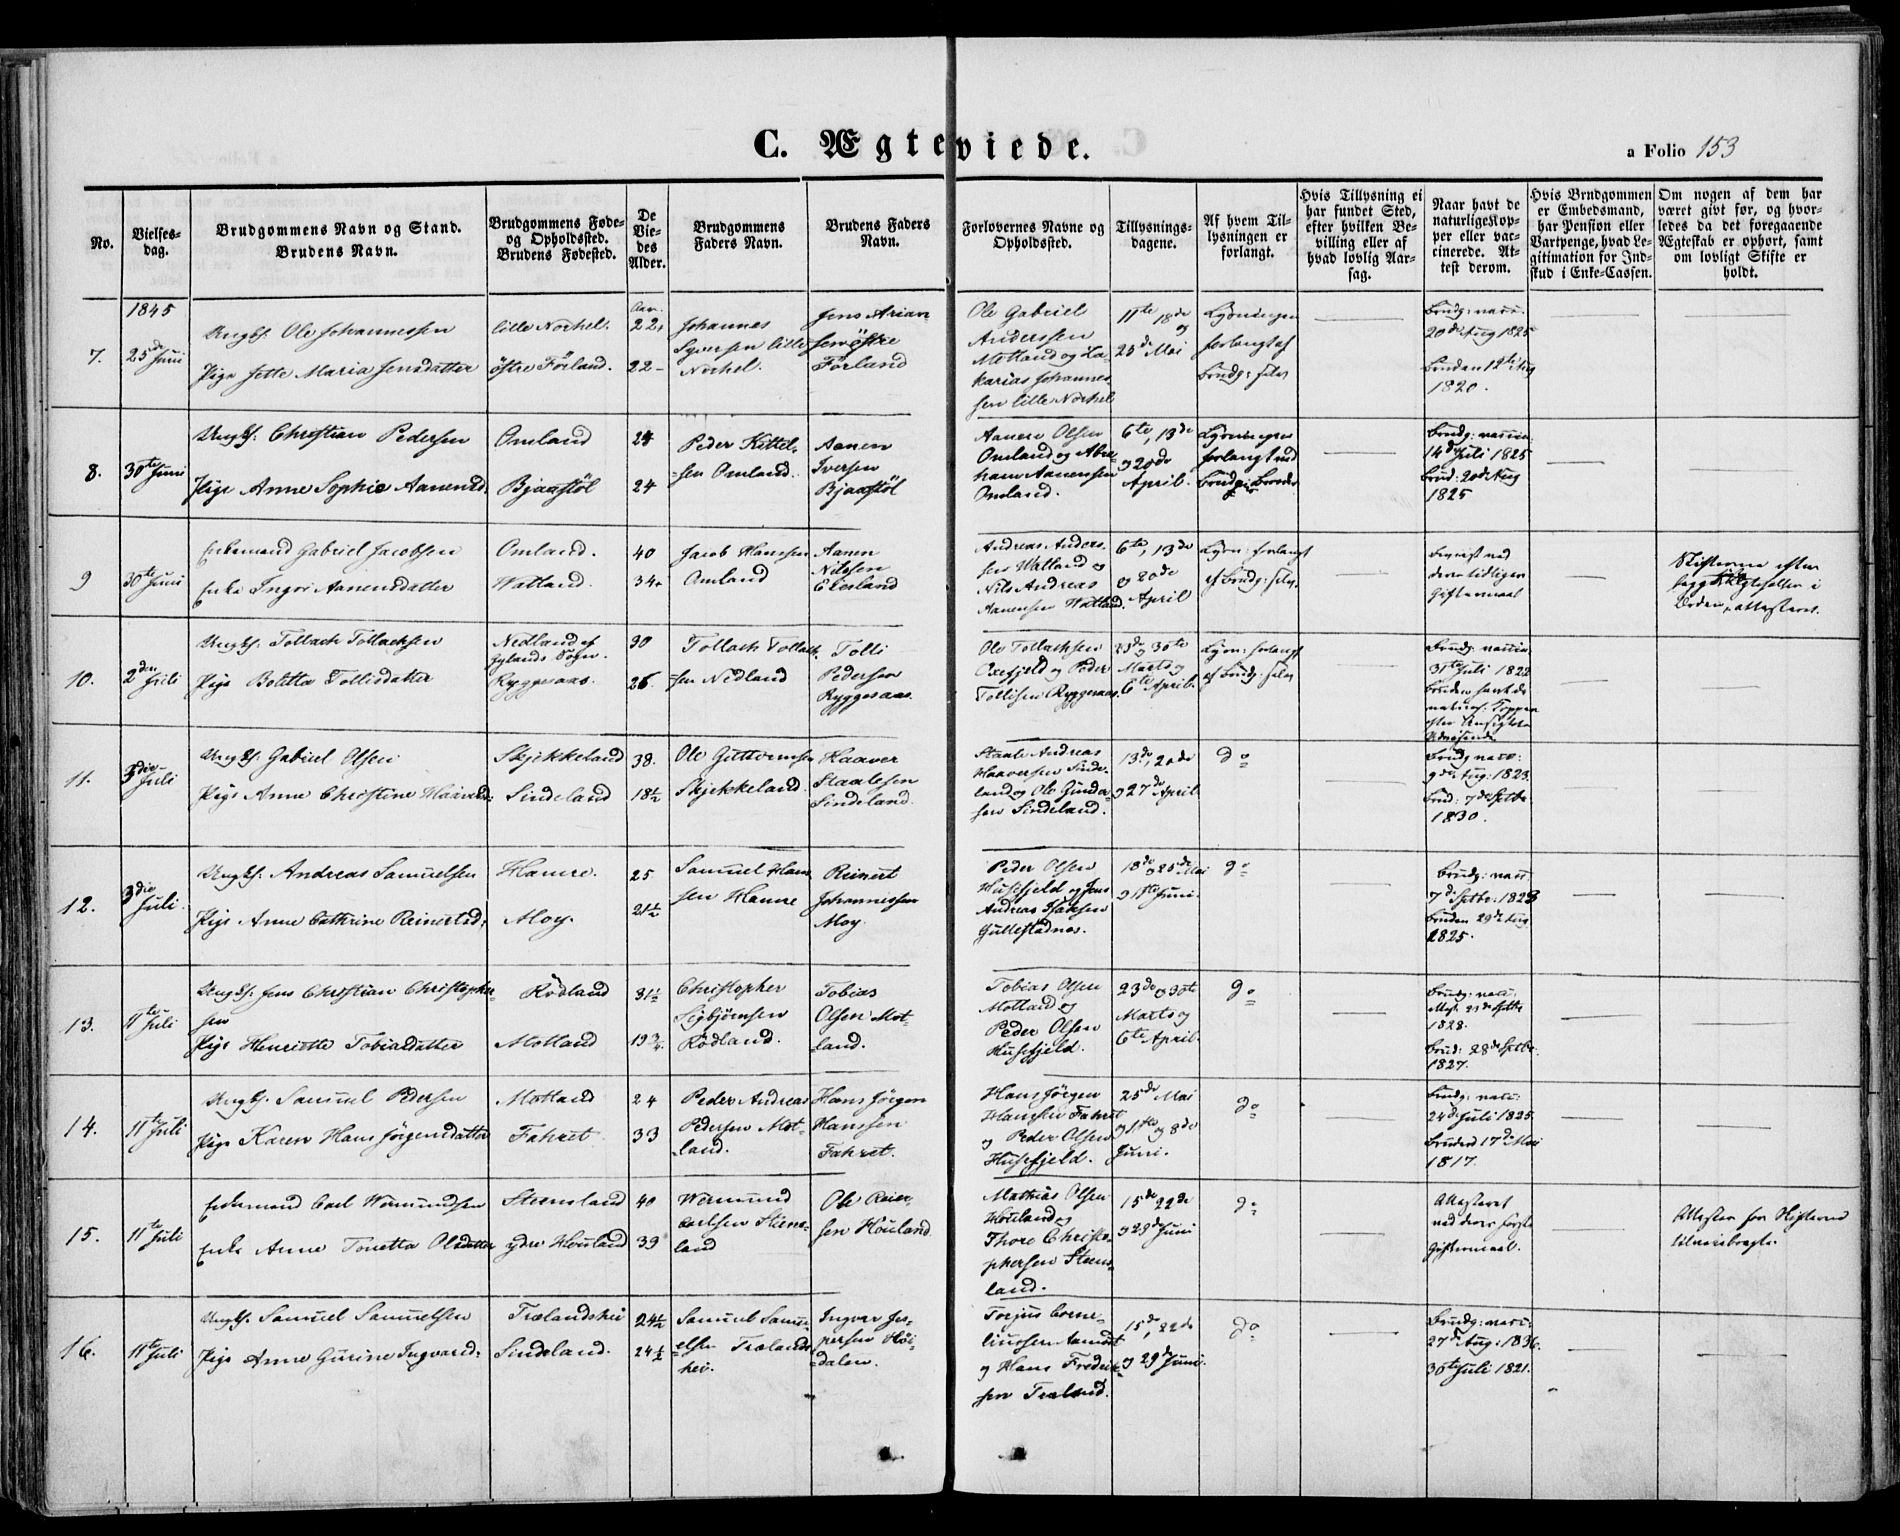 C. Ægteviede.
a Folio 153
No.
Vielses-
dag.
Brudgommens Navn og Stand.
Brudens Navn.
Brudgommens Føde-
og Opholdssted.
Brudens Fødested.
De
Vie-
des
Alder.
Brudgommens
Faders Navn.
Brudens Faders
Navn.
Forlovernes Navne og
Opholdssted.
Tillysnings-
dagene.
Af hvem Til-
lysningen er
forlangt.
Hvis Tillysning ei
har fundet Sted,
efter hvilken Be-
villing eller af
hvad lovlig Aar-
sag.
Naar havt de
naturlige Kop-
per eller vac-
cinerede. At-
test derom.
Hvis Brudgommen
er Embedsmand,
har Pension eller
Vartpenge, hvad Le-
gitimation for Ind-
skud i Enke-Cassen.
Om nogen af dem har
været givt før, og hvor-
ledes da det foregaaende
Ægteskab er ophørt, samt
om lovligt Skifte er
holdt.
1845
7.
25de Juni
Ungks. Ole Johannessen
Pige Jette Maria Jensdatter
lille Nochel.
østre Førland.
Aar.
22
22
Johannes
Syversen lille
Nochel.
Jens Arian-
sen østre
Førland
Ole Gabriel
Anderssen
Motland og Za-
karias Johannes-
sen lille Nochel
11te 18de
og
25de Mai
Lysningen
forlangt af
Brudg: selv
Brudg: vacc:
20de Aug 1825
Bruden 12te Aug
1820.
8.
30te Juni
Ungks. Christian Pedersen
Pige Anne Sophie Aanensd:
Omland
Bjaastöl
24
24
Peder Kittel-
sen Omland.
Aanen
Iversen
Bjaastöl
Aanen Olsen
Omland og Abra-
ham Aanensen
Omland.
6te, 13de
og 20de
April.
Lysningen
forlangt ved
Brudg: Broder
Brudg: vaccin:
14de Juli 1825
Brud: 20de Aug
1825
9
30te Juni
Enkemand Gabriel Jacobsen
Enke Inger Aanensdatter
Omland.
Watland.
40
34
Jacob Hanssen
Omland
Aanen
Nilssen
Eiesland
Andreas Anders-
sen Watland og
Nils Andreas
Aanensen Watland.
6te, 13de
og 20de
April
Lysn: forlangt
af Brudg: selv.
Beviist ved
deres tidligere
Giftermaal
Skifterne efter
begges Ægtefæller i
Orden, attesteret.
10.
2den Juli
Ungks. Tollach Tollachsen
Pige Boletta Tollisdatter
Nedland af
Gylands Sogn.
Ryggesaas.
30
26.
Tollach Tollach-
sen Nedland
Tolli
Pedersen
Ryggesaas
Ole Tollachsen
Oxefjeld og Peder
Tollisen Ryggesaas
23de og 30te
Marts og
6te April.
Lysn: forlangt
af Brudg: selv
Brudg: vaccin.
31te Juli 1822
Bruden havt de
naturl: Kopper
efter Ansigtets
Udvisende
11.
3die Juli
Ungks. Gabriel Olsen
Pige Anne Christine Haaversd:
Skjekkeland
Sindeland
38.
18½
Ole Guttormsen
Skjekkeland.
Haaver
Staalesen
Sindeland.
Staale Andreas
Haaversen Sinde-
land og Ole Gunder-
sen Sindeland.
13de, 20de
og 27de April.
do
Brudg vacc:
9de Aug: 1823.
Brud: 7de Septbr
1830.
12.
3die Juli.
Ungks. Andreas Samuelsen
Pige Anne Cathrine Reinertsd:
Hamre.
Moy.
25
21½
Samuel Han-
sen Hamre
Reinert
Johannessen
Moy.
Peder Olsen
Husefjeld og Jens
Andreas Isaksen
Gullestadnes.
18de og 25de Mai
og 1ste Juni.
do
Brudg: vacc
7de Septbr: 1823
Bruden 29de Aug
1825.
13.
11te Juli
Ungks. Jens Christian Christopher-
sen
Pige Henriette Tobiasdatter
Rödland
Motland
31½
19¾
Christopher
Sigbjørnsen
Rödland.
Tobias
Olsen Mot-
land.
Tobias Olsen
Motland og
Peder Olsen
Husefjeld.
23de og 30te
Marts og
6te April.
do
Brudg: vacc:
Att. 23de Septbr
1828.
Brud: 28de Septbr.
1827.
14.
11te Juli
Ungks. Samuel Pedersen
Pige Karen Hans Jörgensdatter
Motland
Fahret
24
33
Peder Andreas
Pedersen Mot-
land.
Hans Jörgen
Hanssen
Fahret.
Hans Jörgen
Hanssen Fahret
og Peder Olsen
Husefjeld.
25de Mai
og 1ste og 8de
Juni.
do
Brudg: vacc:
24de Juli 1825.
Bruden 17de Mai
1817.
15.
11te Juli
Enkemand Carl Wermundsen
Enke Anne Tonetta Olsdatter
Steensland
ydre Houland
40
39
Wermund
Carlsen Steens-
land
Ole Reier-
sen Houland.
Mathias Olsen
Houland og
Thore Christo-
phersen Steens-
land.
15de 22de
og 29de Juni
do
Attesteret
ved deres første
Giftermaal.
Attester for Skifterne
tilveiebragte.
16.
11te Juli
Ungks. Samuel Samuelsen
Pige Anne Gurine Ingvarsd:
Trælandshei
Sindeland.
24½
24½
Samuel Samu-
elsen Trælands-
hei.
Ingvar Jes-
persen Höi-
dalen.
Torjus Corne-
liussen Aamdt
og Hans Fredrik-
sen Træland.
15de, 22de
og 29de Juni.
do
Brudg: vacc:
27de Aug: 1836.
30te Juli 1821.